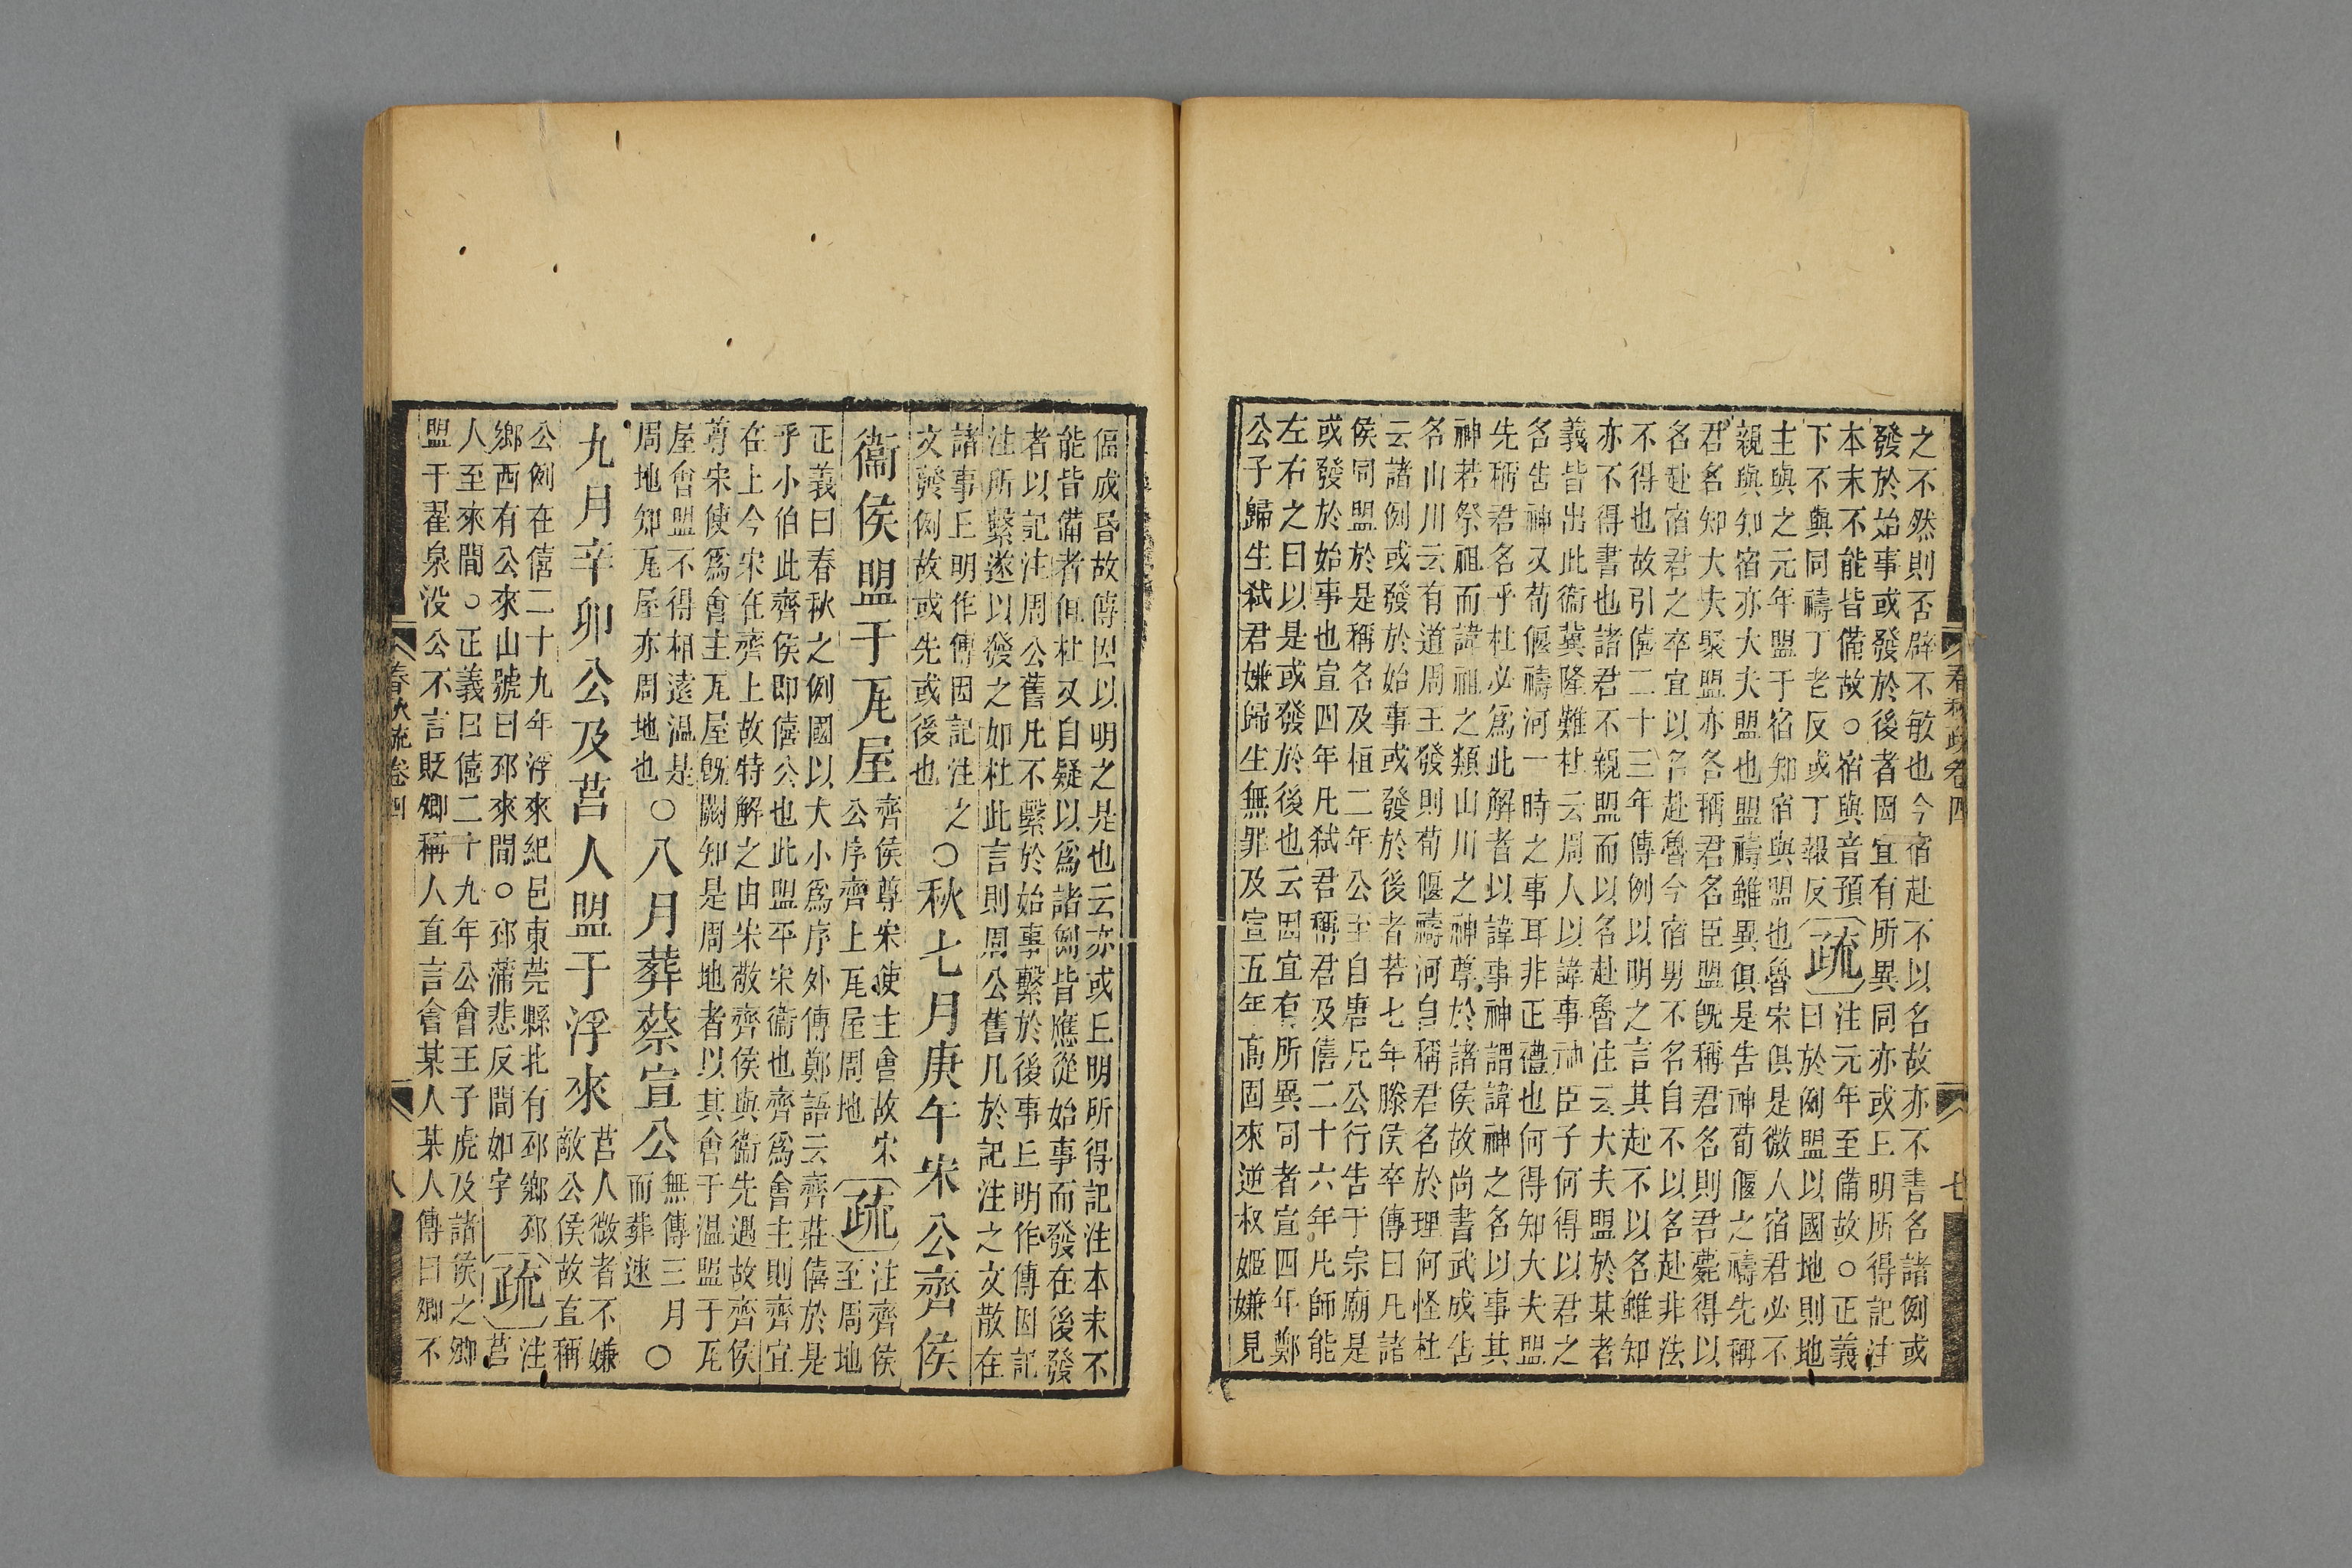 之不然則否辟不敏也今宿赴不以名故亦不書名諸例或
發於始事或發於後者因宜有所異同亦或丘明所得記注
本末不能皆備故○宿與音預
下不與同禱丁老反或丁報反
疏
注元年至備故○正義
曰於例盟以國地則地
主與之元年盟于宿知宿與盟也魯宋俱是微人宿君必不
親與知宿亦大夫盟也盟禱雖異俱是告神荀偃之禱先稱
君名知大夫聚盟亦各稱君名臣盟既稱君名則君薨得以
名赴宿君之卒宜以名赴魯今宿男不名自不以名赴非法
不得也故引僖二十三年傳例以明之言其赴不以名雖知
亦不得書也諸君不親盟而以名赴魯注云大夫盟於某者
義皆出此衞冀隆難杜云周人以諱事神臣子何得以君之
名告神又荀偃禱河一時之事耳非正禮也何得知大夫盟
先稱君名乎杜必爲此解者以諱事神謂諱神之名以事其
神若祭祖而諱祖之類山川之神尊於諸侯故尚書武成告
名山川云有道周王發則荀偃禱河自稱君名於理何怪杜
云諸例或發於始事或發於後者若七年滕侯卒傳曰凡諸
侯同盟於是稱名及桓二年公至自唐凡公行告于宗廟是
或發於始事也宣四年凡弒君稱君及僖二十六年凡師能
左右之曰以是或發於後也云因宜有所異同者宣四年鄭
公子歸生弒君嫌歸生無罪及宣五年高固來逆叔姬嫌見
偪成昏故傳因以明之是也云亦或丘明所得記注本末不
能皆備者但杜又自疑以爲諸例皆應從始事而發在後發
者以記注周公舊凡不繫於始事繫於後事丘明作傳因記
注所繫遂以發之如杜此言則周公舊凡於記注之文散在
諸事丘明作傳因記注之
文發例故或先或後也
○秋七月庚午宋公齊侯
衞侯盟于瓦屋
齊侯尊宋使主會故宋
公序齊上瓦屋周地
疏
注齊侯
至周地
正義曰春秋之例國以大小爲序外傳鄭語云齊莊僖於是
乎小伯此齊侯即僖公也此盟平宋衞也齊爲會主則齊宜
在上今宋在齊上故特解之由宋敬齊侯與衞先遇故齊侯
尊宋使爲會主瓦屋既闕知是周地者以其會于溫盟于瓦
屋會盟不得相遠溫是
周地知瓦屋亦周地也
○八月葬蔡宣公
無傳三月
而葬速
○
九月辛卯公及莒人盟于浮來
莒人微者不嫌
敵公侯故直稱
公例在僖二十九年浮來紀邑東莞縣北有邳鄉邳
鄉西有公來山號曰邳來間○邳蒲悲反間如字
疏
注
莒
人至來間○正義曰僖二十九年公會王子虎及諸侯之卿
盟于翟泉沒公不言貶卿稱人直言會某人某人傳曰卿不
春秋疏卷四
七
春秋疏卷四